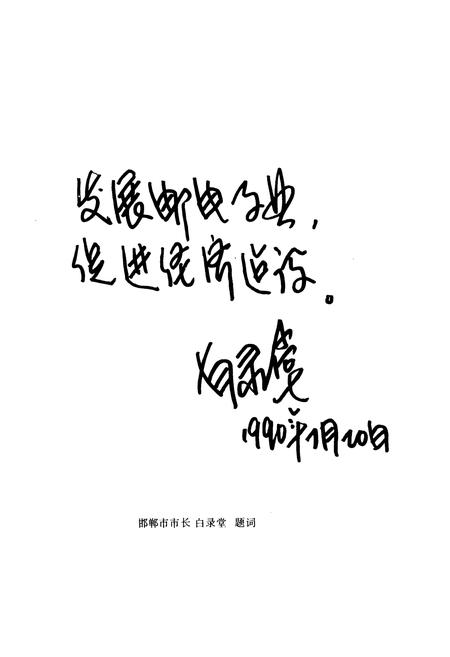 发展邮电事业，
促进经济建设。
白录堂
1990年1月20日
邯郸市市长 白录堂 题词